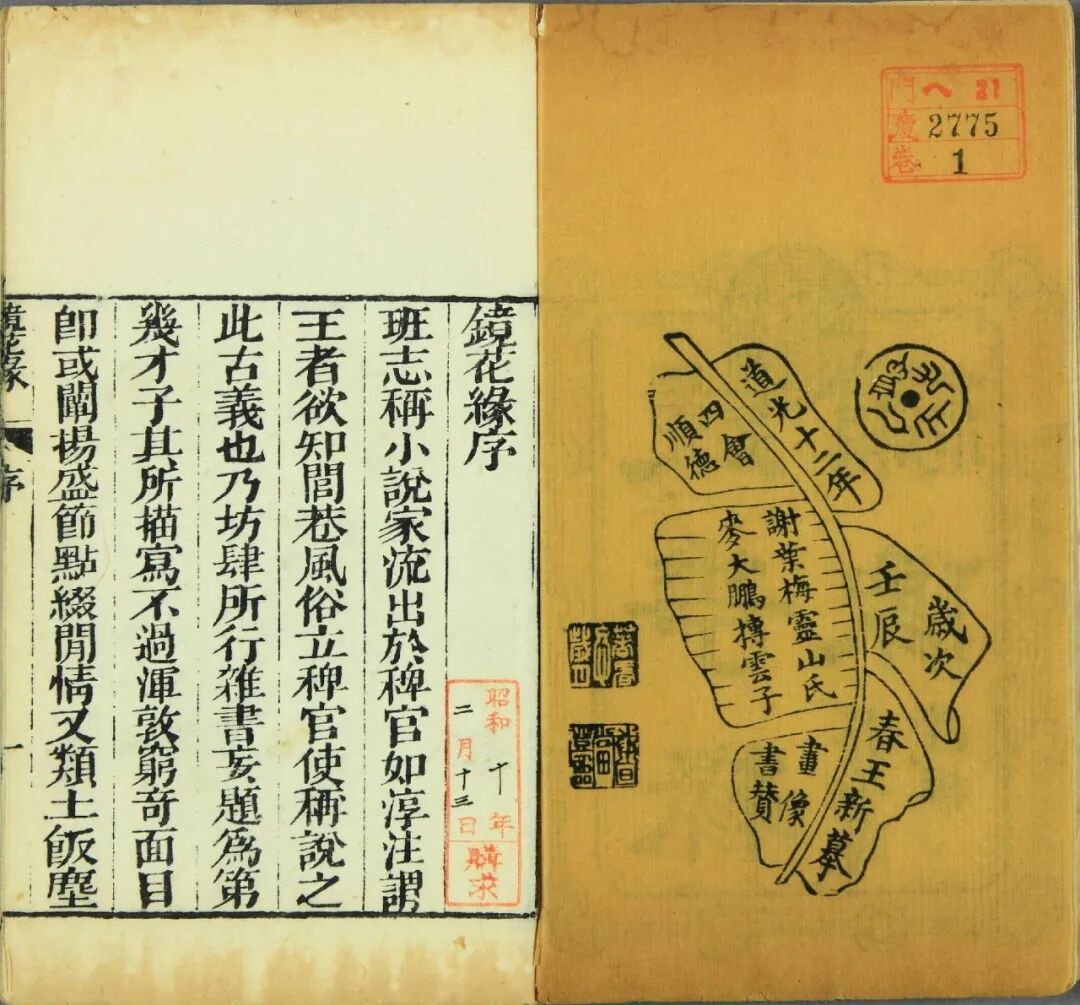 門 ヘ 21
號 2775
卷 1
道光十二年
歲次
壬辰
春王新摹
四會
順德
謝葉梅靈山氏
麥大鵬摶雲子
畫像
書贊
鏡花緣序
昭和十年
二月十三日
購求
班志稱小說家流出於稗官如淳注謂
王者欲知閭巷風俗立稗官使稱說之
此古義也乃坊肆所行雜書妄題為第
幾才子其所描寫不過渾敦窮奇面目
卽或闡揚盛節點綴閒情又類土飯塵
鏡花緣 序 一